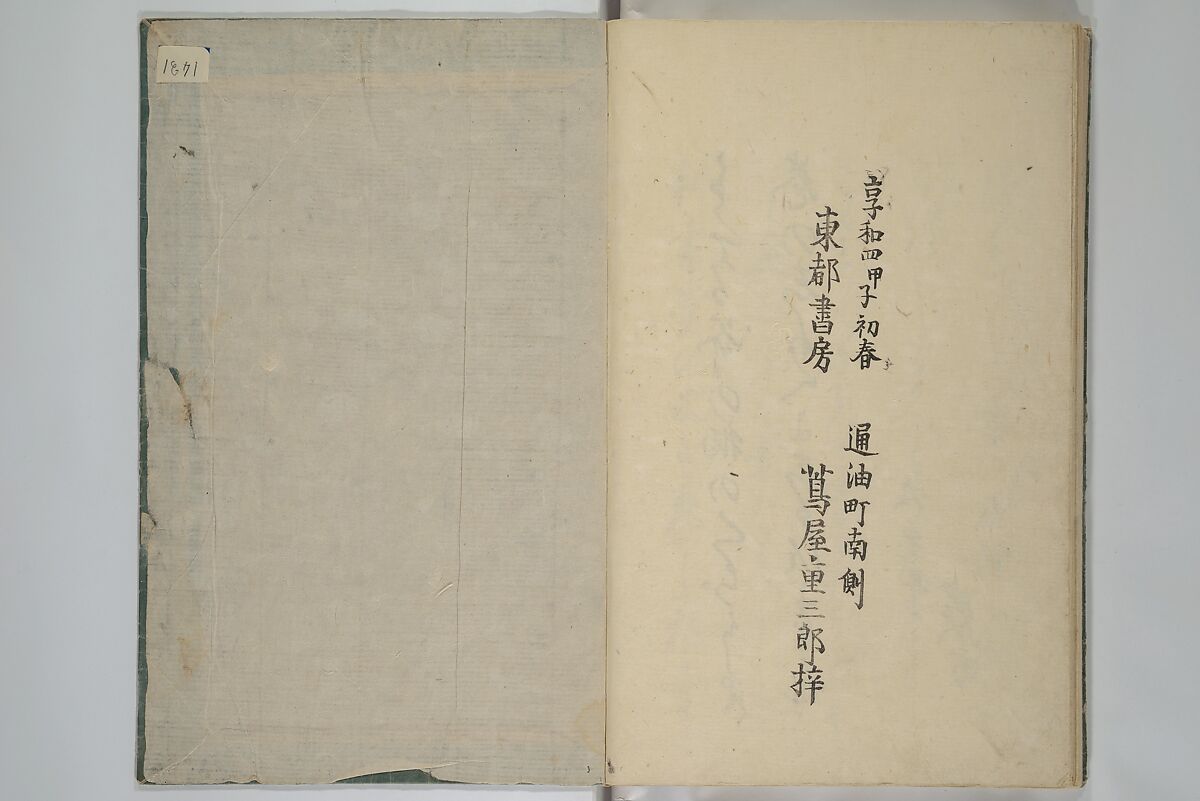 享和四甲子初春
東都書房
通油町南側
蔦屋重三郎梓
1431